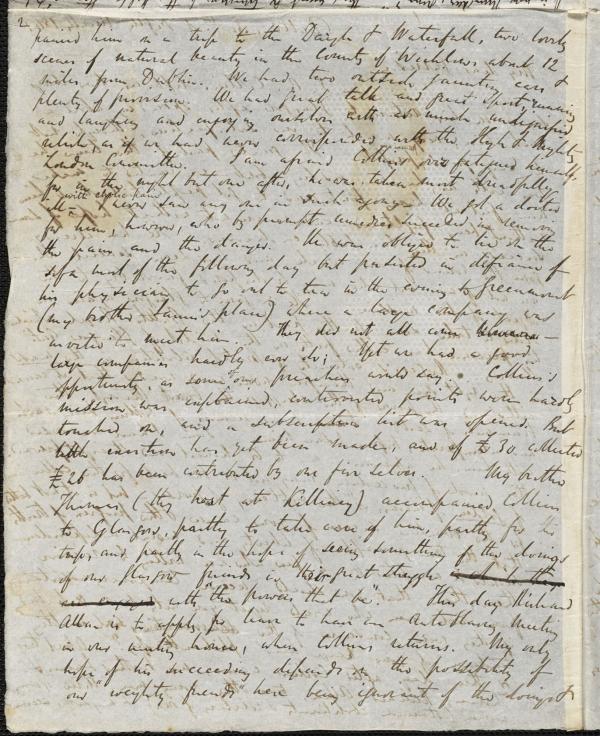 2
panied him on a trip to the Dargle & Waterfall, two lovely
scenes of natural beauty in the County of Wicklow about 12
miles from Dublin. We had two outside jaunting cars &
plenty of provision. We had great talk and great sport running
and laughing and enjoying ourselves with as much undignified
relish, as if we had never corresponded with the High & Mighty
London Committee. I am afraid Collins over fatigued himself
for the night but one after, he was taken most dreadfully
ill with pain
I never saw any one in such agony. We got a doctor
for him, however, who by prompt remedies succeeded in removing
the pain and the danger. He was obliged to lie on the
sofa most of the following day but persisted in defiance of
his physician to go out to tea in the evening to Greenmount
(my brother place) where a large company was
invited to meet him. They did not all come
large companies hardly ever do; Yet we had a good
opportunity as some of our preachers would say. Collins's
mission was explained, controverted points were hardly
touched on, and a subscription list was opened. But
little exertion has yet been made, and of £30 collected
£26 has been contributed by our five selves. My brother
Thomas (thy host at Killiney) accompanied Collins
to Glasgow, partly to take care of him, partly for his
trip, and partly in the hope of seeing something of the doings
of our Glasgow friends in their great struggle
with "the powers that be". This day Richard
Allen is to apply for leave to have an Anti Slavery Meeting
in our meeting house, when Collins returns. My only
hope of his succeeding depends on the possibility of
our "weighty friends" here being ignorant of the doings of